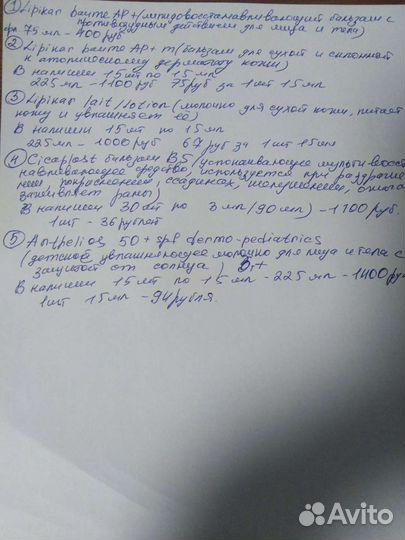 ① Lipikar baume AP+/липидовосстанавливающий бальзам с
противозудным действием для лица и тела)
75 мл - 400 руб
② Lipikar baume AP+ m (бальзам для сухой и склонной
к атопическому дерматиту кожи)
В наличии 15 шт по 15 мл
225 мл - 1100 руб 75 руб за 1 шт 15 мл
③ Lipikar lait/lotion (молочко для сухой кожи, питает
кожу и увлажняет её)
В наличии 15 шт по 15 мл
225 мл - 1000 руб 67 руб за 1 шт 15 мл
④ Cicaplast бальзам B5 (успокаивающее мульти-восста
навливающее средство, используется при раздраже
нии покраснении, ссадинах, шелушении, ожога
заживляет раны)
В наличии 30 шт по 3 мл (90 мл) - 1100 руб.
1 шт - 36 рублей
⑤ Anthelios 50+ spf dermo-pediatrics
(детское увлажняющее молочко для лица и тела с
защитой от солнца)
В наличии 15 шт по 15 мл - 225 мл - 1400 ру
1 шт 15 мл - 94 рубля.
Avito